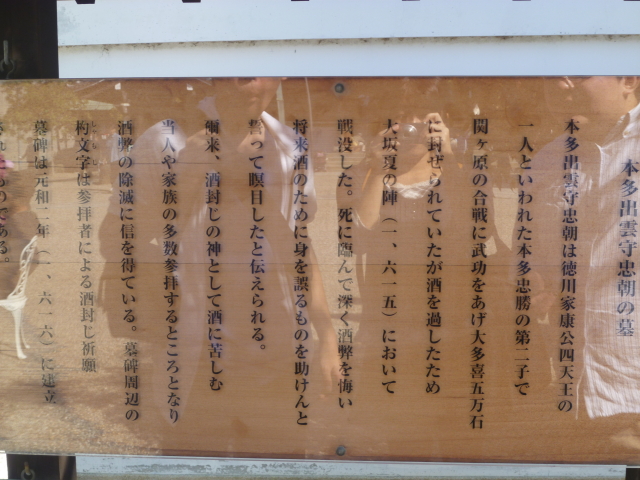 本多出雲守忠朝の墓
本多出雲守忠朝は徳川家康公四天王の
一人といわれた本多忠勝の第二子で
関ヶ原の合戦に武功をあげ大多喜五万石
に封ぜられていたが酒を過したため
大坂夏の陣(一、六一五)において
戦没した。死に臨んで深く酒弊を悔い
将来酒のために身を誤るものを助けんと
誓って瞑目したと伝えられる。
爾来、酒封じの神として酒に苦しむ
当人や家族の多数参拝するところとなり
酒弊の除滅に信を得ている。墓碑周辺の
杓文字は参拝者による酒封じ祈願
墓碑は元和二年(一、六一六)に建立
されたものである。